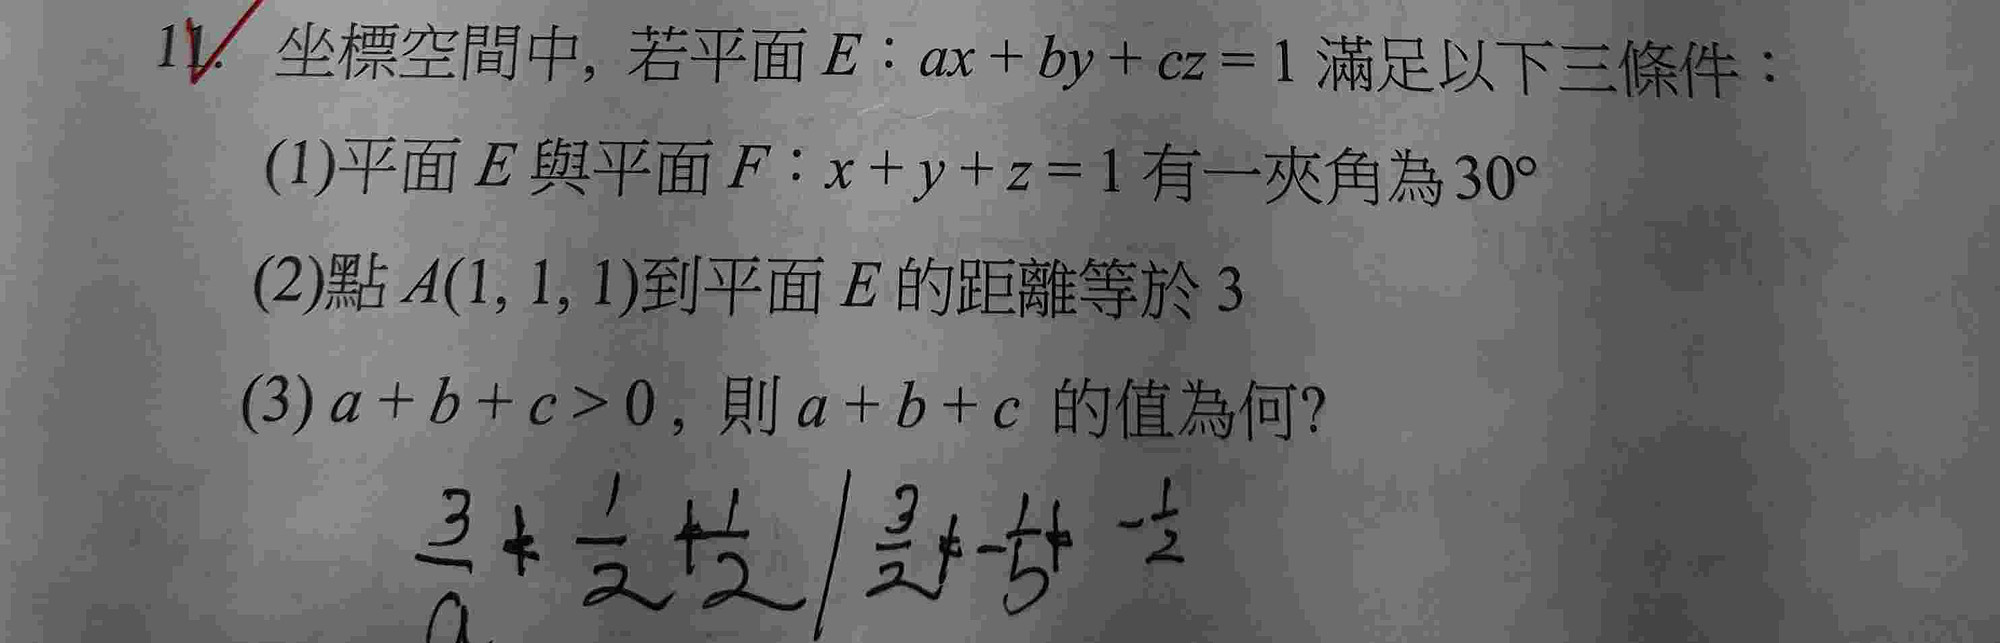 11. 坐標空間中, 若平面 E：ax + by + cz = 1 滿足以下三條件：
(1)平面 E 與平面 F：x + y + z = 1 有一夾角為30°
(2)點 A(1, 1, 1)到平面 E 的距離等於 3
(3) a + b + c > 0, 則 a + b + c 的值為何?
3/a + 1/2 + 1/2 / 3/2 + -1/5 + -1/2